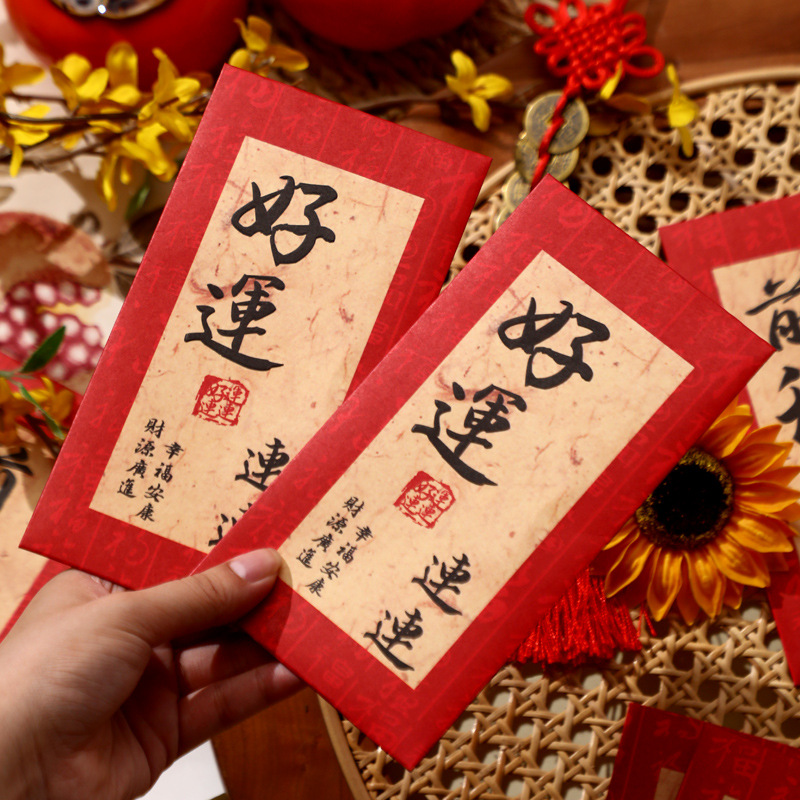 好運
連
好運連連
幸福安康
財源廣進
好運
連連
好運連連
幸福安康
財源廣進